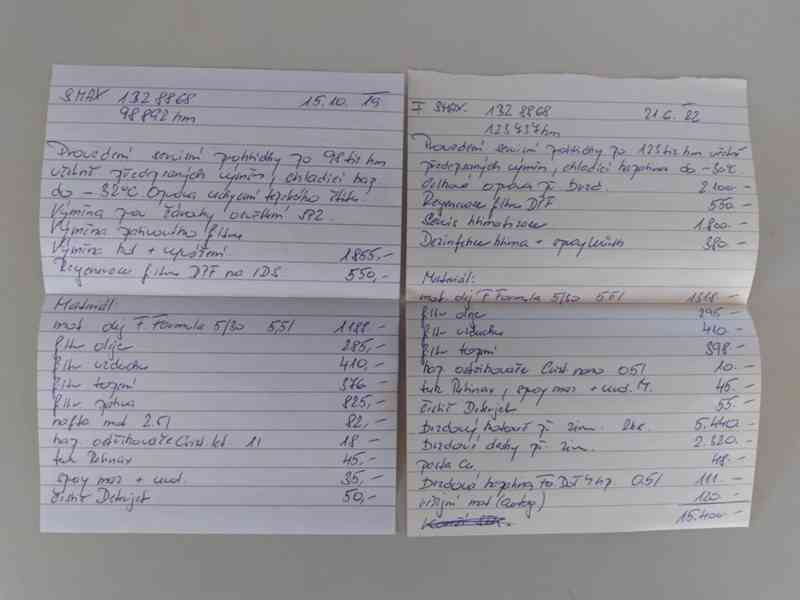 SMAX 1328868 15.10. 19
98892 km
Provedení servisní prohlídky po 98 tis km
včetně předepsaných výměn, chladící kap
do -32°C Oprava uchycení tepelného štítu.
Výměna žárovky osvětlení SPZ.
Výměna palivového filtru
Výměna kol + vyvážení 1855,-
Regenerace filtru DPF na IDS 550,-
Materiál:
mot. olej F Formula 5/30 5,5l 1188,-
filtr oleje 285,-
filtr vzduchu 410,-
filtr topení 376,-
filtr paliva 825,-
nafta mot 2.5l 82,-
kap. ostřikovače 1l 18,-
tuk 45,-
spray maz + vod. 35,-
čistič 50,-
I SMAX. 1328868 21.6. 22
123737 km
Provedení servisní prohlídky po 123 tis km včetně
předepsaných výměn, chladící kapalina do -30°C
Celková oprava př brzd. 2200.-
Regenerace filtru DPF 550.-
Servis klimatizace 1.800.-
Dezinfekce klima + spray 380.-
Materiál:
mot. olej F Formula 5/30 5,5l
filtr oleje 295.-
filtr vzduchu 410.-
filtr topení 398.-
kap ostřikovače nano 0.5l 10.-
tuk, spray maz + vod. M. 45.-
čistič 55.-
Brzdový kotouč př 2ks. 5.440.-
Brzdové desky př 2.320.-
pasta Cu. 48.-
Brzdová kapalina Fo Dot4 0.5l 111.-
mat 120.-
15.400.-